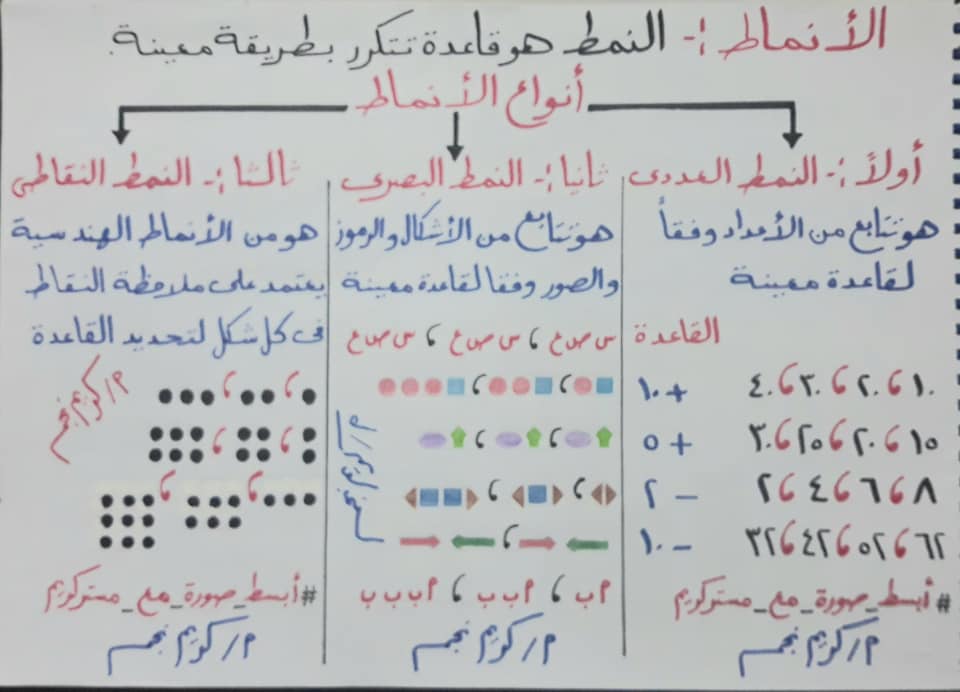 الأنماط :- النمط هو قاعدة تتكرر بطريقة معينة.
أنواع الأنماط
أولاً :- النمط العددى
هو تتابع من الأعداد وفقاً
لقاعدة معينة
القاعدة
١٠ ، ٢٠ ، ٣٠ ، ٤٠ +١٠
١٥ ، ٢٠ ، ٢٥ ، ٣٠ + ٥
٨ ، ٦ ، ٤ ، ٢ - ٢
٦٢ ، ٥٢ ، ٤٢ ، ٣٢ - ١٠
#أبسط_صورة_مع_مستركريم
م/ كريم نجم
ثانيا :- النمط البصرى
هو تتابع من الأشكال والرموز
والصور وفقا لقاعدة معينة
س ص ع ، س ص ع ، س ص ع
أ ب ، أ ب ب ، أ ب ب ب
م/ كريم نجم
ثالثا :- النمط النقاطى
هو من الأنماط الهندسية
يعتمد على ملاحظة النقاط
فى كل شكل لتحديد القاعدة
م/ كريم نجم
#أبسط_صورة_مع_مستركريم
م/ كريم نجم